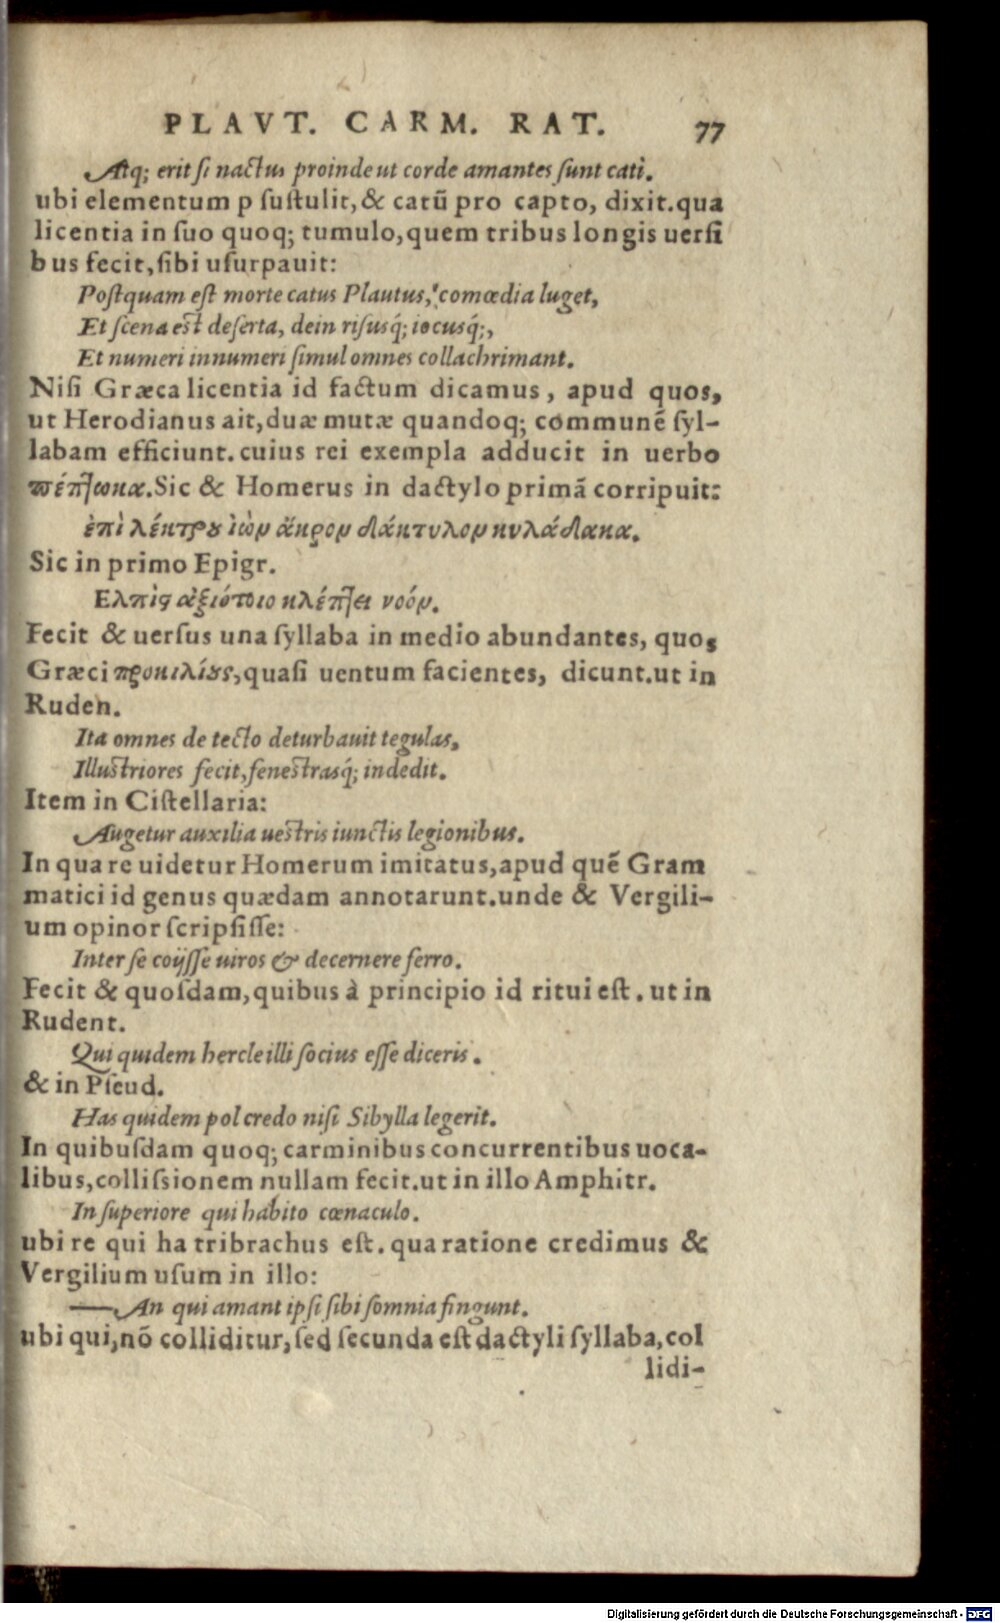 PLAVT. CARM. RAT. 77
Atq; erit si nactus proinde ut corde amantes sunt cati.
ubi elementum p sustulit, & catū pro capto, dixit. qua
licentia in suo quoq; tumulo, quem tribus longis uersi
bus fecit, sibi usurpauit:
Postquam est morte catus Plautus, comœdia luget,
Et scena est deserta, dein risusq́; iocusq́;,
Et numeri innumeri simul omnes collachrimant.
Nisi Græca licentia id factum dicamus, apud quos,
ut Herodianus ait, duæ mutæ quandoq; communē syl-
labam efficiunt. cuius rei exempla adducit in uerbo
πέπτωκα. Sic & Homerus in dactylo primā corripuit:
ἐπὶ λέκτρου ἰὼν ἄκρον δάκτυλον κυλάδακα.
Sic in primo Epigr.
Ελπὶς ἀξιότοιο κλέπτει νοόν.
Fecit & uersus una syllaba in medio abundantes, quos
Græci προκιλίους, quasi uentum facientes, dicunt. ut in
Ruden.
Ita omnes de tecto deturbauit tegulas,
Illustriores fecit, fenestrasq́; indedit.
Item in Cistellaria:
Augetur auxilia uestris iunctis legionibus.
In qua re uidetur Homerum imitatus, apud quē Gram
matici id genus quædam annotarunt. unde & Vergili-
um opinor scripsisse:
Inter se coijsse uiros & decernere ferro.
Fecit & quosdam, quibus à principio id ritui est. ut in
Rudent.
Qui quidem hercle illi socius esse diceris.
& in Pseud.
Has quidem pol credo nisi Sibylla legerit.
In quibusdam quoq; carminibus concurrentibus uoca-
libus, collissionem nullam fecit. ut in illo Amphitr.
In superiore qui habito cœnaculo.
ubi re qui ha tribrachus est. qua ratione credimus &
Vergilium usum in illo:
—An qui amant ipsi sibi somnia fingunt.
ubi qui, nō colliditur, sed secunda est dactyli syllaba, col
lidi-
Digitalisierung gefördert durch die Deutsche Forschungsgemeinschaft - DFG